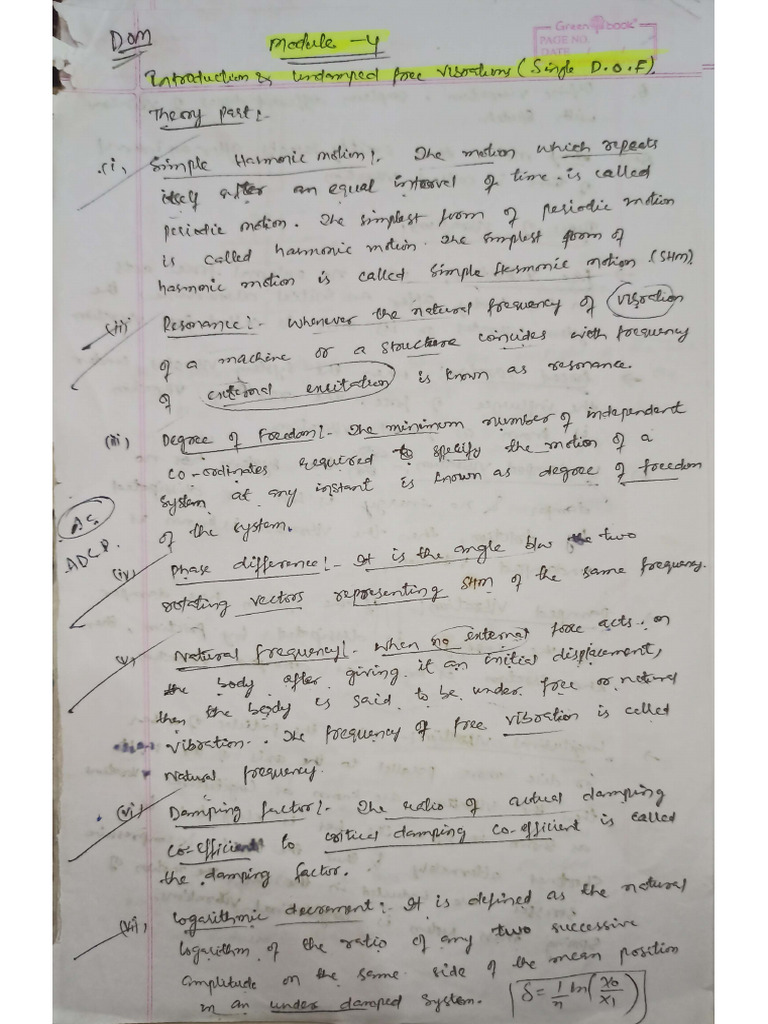 DOM
Module - 4
Green book
PAGE NO.
DATE
Introduction & undamped free vibrations (Single D.O.F).
Theory part :-
(i) Simple Harmonic motion :- The motion which repeats
itself after an equal interval of time is called
periodic motion. The simplest form of periodic motion
is called harmonic motion. The simplest form of
harmonic motion is called Simple Harmonic motion (SHM).
(ii) Resonance :- Whenever the natural frequency of vibration
of a machine or a structure coincides with frequency
of external excitation is known as resonance.
(iii) Degree of Freedom :- The minimum number of independent
co-ordinates required to specify the motion of a
system at any instant is known as degree of freedom
of the system.
ADCP.
(iv) Phase difference :- It is the angle b/w the two
rotating vectors representing SHM of the same frequency.
(v) Natural frequency :- When no external force acts on
the body after giving it an initial displacement,
then the body is said to be under free or natural
vibration. The frequency of free vibration is called
Natural frequency.
(vi) Damping factor :- The ratio of actual damping
co-efficient to critical damping co-efficient is called
the damping factor.
(vii) Logarithmic decrement :- It is defined as the natural
logarithm of the ratio of any two successive
amplitude on the same side of the mean position
in an under damped system. δ = 1/n ln(x0/x1)